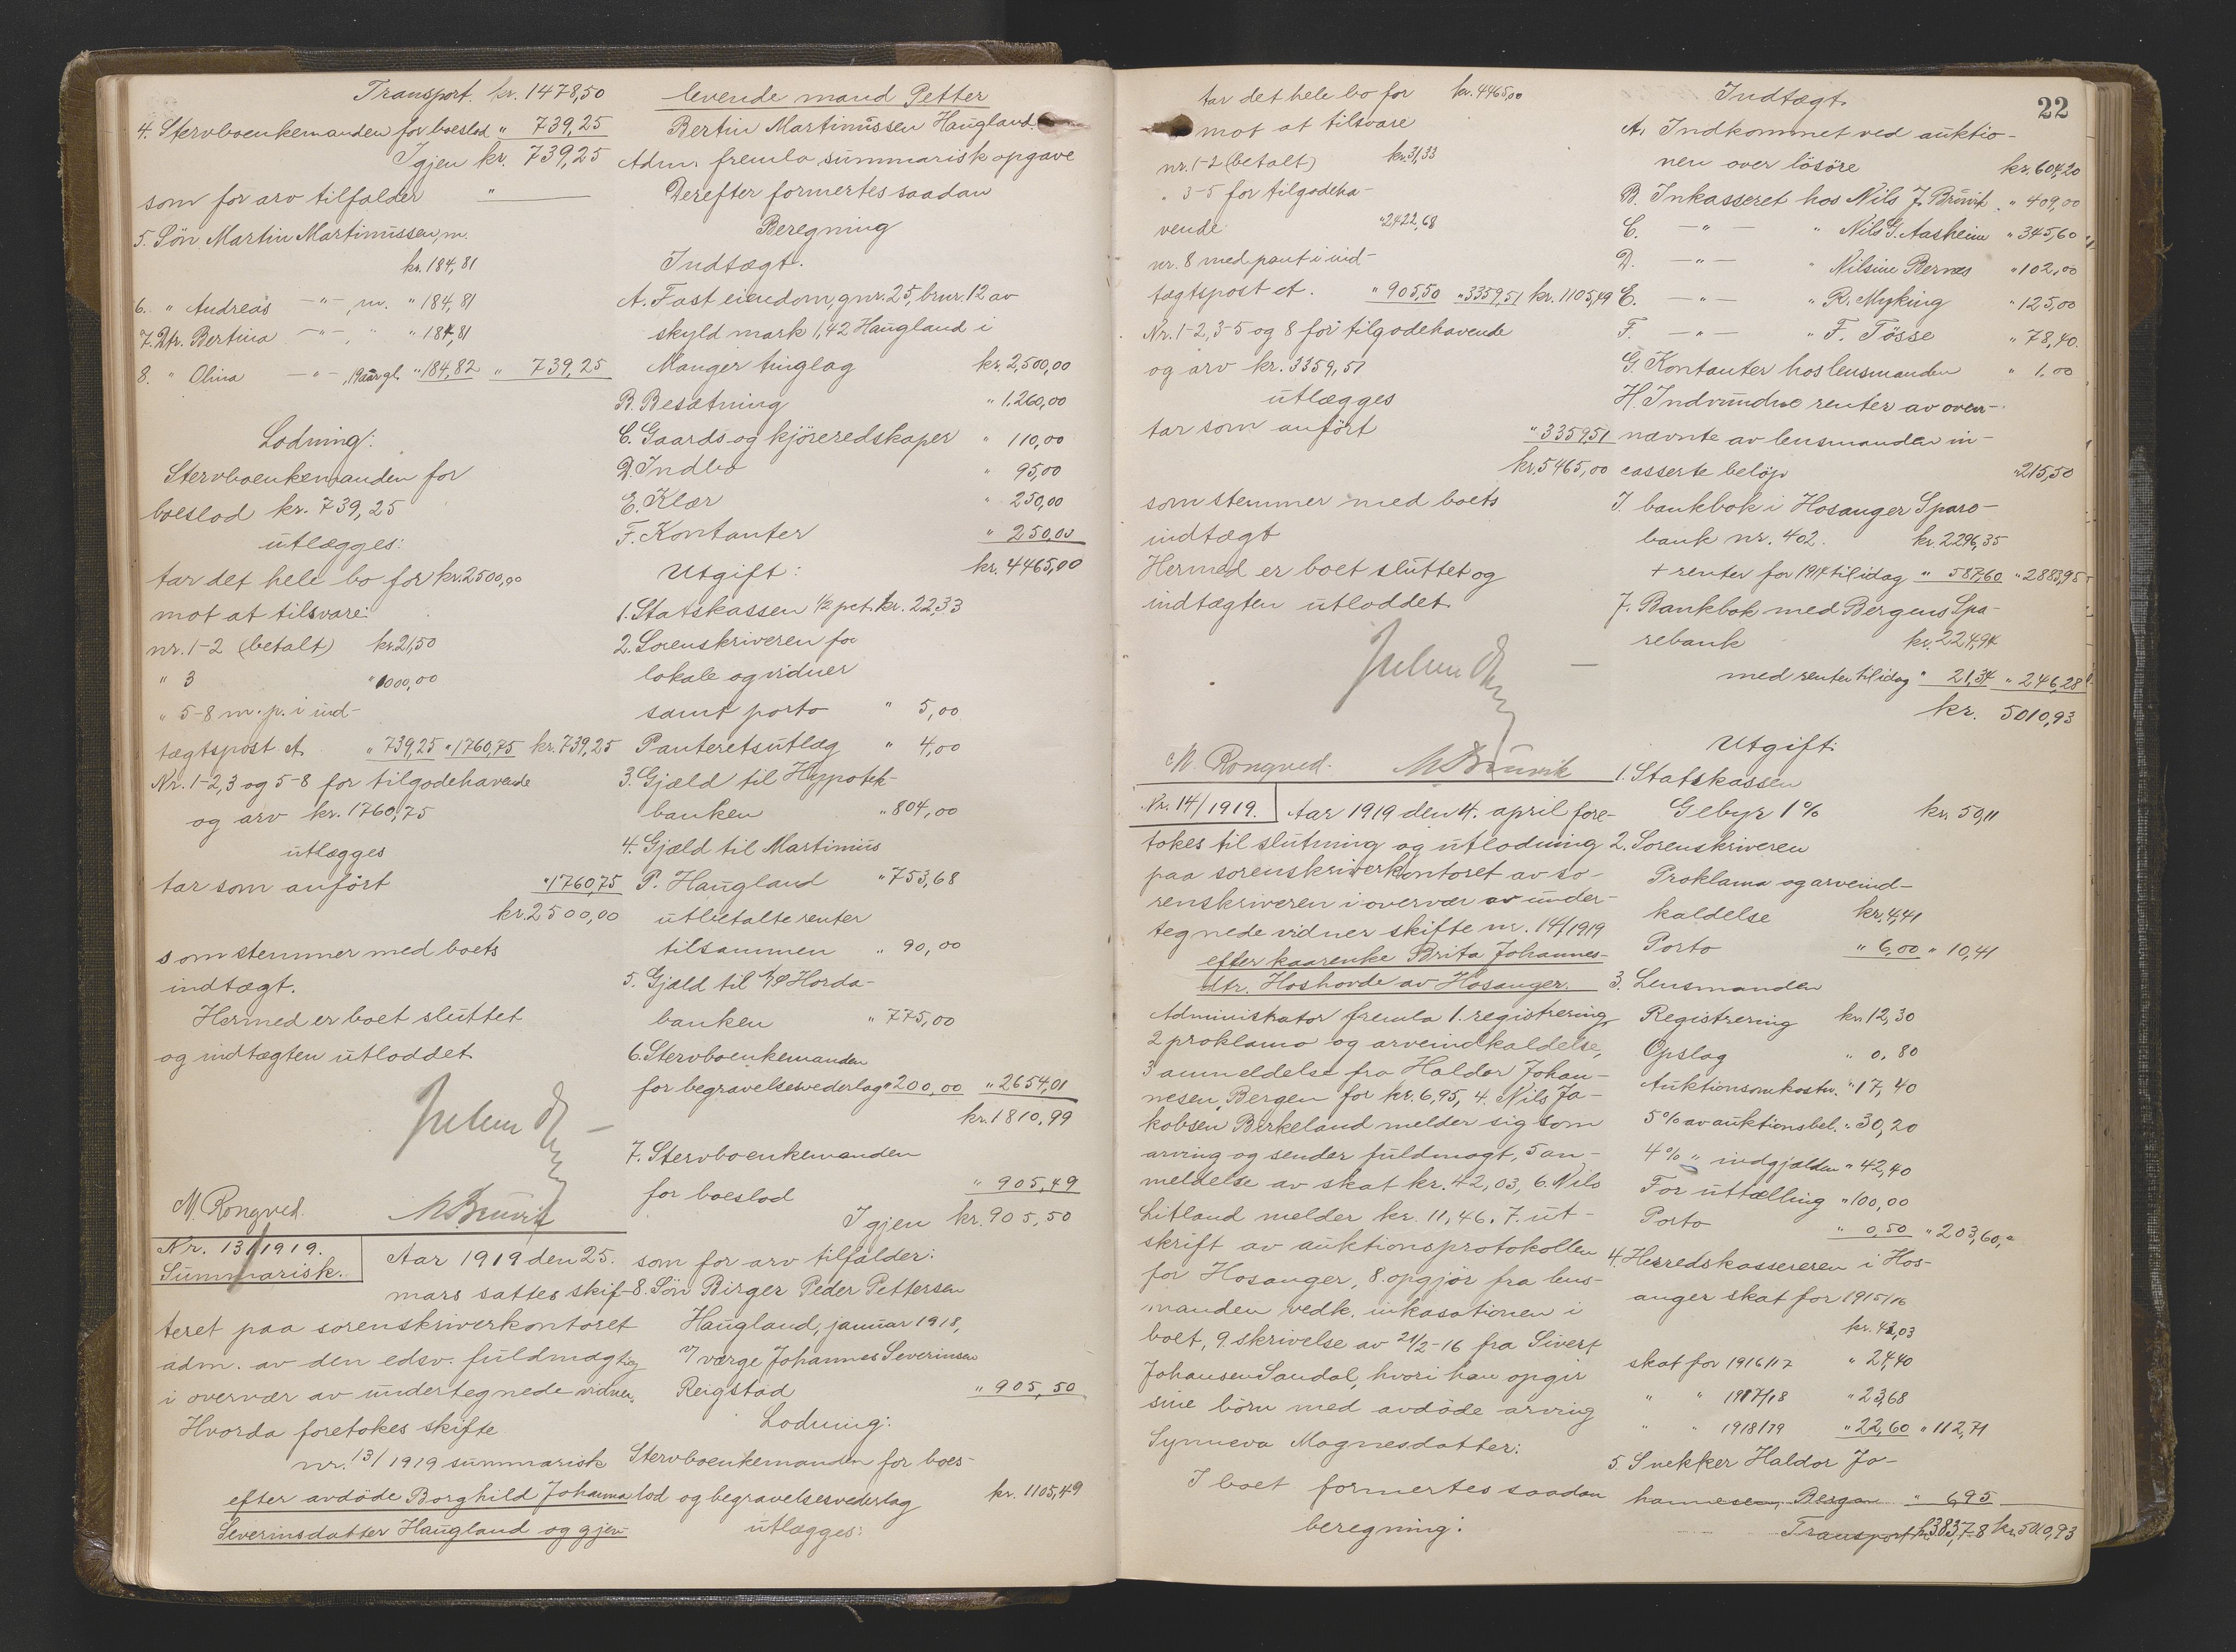 Transport. kr. 1478,50
4. Stervboenkemanden for boeslod " 739,25
Igjen kr. 739,25
som for arv tilfalder "
5. Søn Martin Martinussen, m.
kr. 184,81
6. " Andreas —"—, m. " 184,81
7. Dtr. Bertina —"—, " " 184,81
8. " Olina —"—, 19 aar gl. " 184,82 " 739,25
Lodning:
Stervboenkemanden for
boeslod kr. 739,25
utlægges:
tar det hele bo for kr. 2500,00
mot at tilsvare:
nr. 1-2 (betalt) kr. 21,50
" 3 " 1000,00
" 5-8 m. p. i ind-
tægtspost A. " 739,25 " 1760,75 kr. 739,25
Nr. 1-2, 3 og 5-8 for tilgodehavende
og arv kr. 1760,75
utlægges
tar som anført " 1760,75
kr. 2500,00
som stemmer med boets
indtægt.
Hermed er boet sluttet
og indtægten utloddet.
M. Rongved. M Brüvik
Nr. 13/1919.
Summarisk.
Aar 1919 den 25.
mars sattes skif-
teret paa sorenskriverkontoret
adm. av den edsv. fuldmægtig
i overvær av undertegnede vidner.
Hvorda foretokes skifte
nr. 13/1919 summarisk
efter avdøde Borghild Johanna
Severinsdatter Haugland og gjen-
levende mand Petter
Bertin Martinussen Haugland.
Adm. fremla summarisk opgave
Derefter formertes saadan
Beregning
Indtægt.
A. Fast eiendom, gnr. 25, brnr. 12 av
skyld mark 1,42 Haugland i
Manger tinglag kr. 2,500,00
B. Besætning " 1,260,00
C. Gaards- og kjøreredskaper " 110,00
D. Indbo " 95,00
E. Klær " 250,00
F. Kontanter " 250,00
kr. 4465,00
Utgift:
1. Statskassen ½ pct. kr. 22,33
2. Sorenskriveren for
lokale og vidner
samt porto " 5,00
Panteretsutlæg " 4,00
3. Gjæld til Hypotek-
banken " 804,00
4. Gjæld til Martinus
P. Haugland " 753,68
utbetalte renter
tilsammen " 90,00
5. Gjæld til A/S Horda-
banken " 775,00
6. Stervboenkemanden
for begravelsesvederlag " 200,00 " 2654,01
kr. 1810,99
7. Stervboenkemanden
for boeslod " 905,49
Igjen kr. 905,50
som for arv tilfalder:
8. Søn Birger Peder Pettersen
Haugland, januar 1918,
v/ værge Johannes Severinsen
Reigstad " 905,50
Lodning:
Stervboenkemanden for boes-
lod og begravelsesvederlag kr. 1105,49
utlægges:
tar det hele bo for kr. 4465,00
mot at tilsvare
nr. 1-2 (betalt) kr. 31,33
" 3-5 for tilgodeha-
vende " 2422,68
nr. 8 med pant i ind-
tægtspost A. " 905,50 " 3359,51 kr. 1105,49
Nr. 1-2, 3-5 og 8 for tilgodehavende
og arv kr. 3359,51
utlægges
tar som anført " 3359,51
kr. 5465,00
som stemmer med boets
indtægt
Hermed er boet sluttet og
indtægten utloddet.
M. Rongved. M Brüvik
Nr. 14/1919.
Aar 1919 den 4. april fore-
tokes til slutning og utlodning
paa sorenskriverkontoret av so-
renskriveren i overvær av under-
tegnede vidner skifte nr. 14/1919
efter kaarenke Brita Johannes-
dtr. Hoshovde av Hosanger.
Administrator fremla 1. registrering,
2 proklama og arveindkaldelse,
3 anmeldelse fra Haldor Johan-
nesen, Bergen for kr. 6,95, 4. Nils Ja-
kobsen Birkeland melder sig som
arving og sender fuldmagt, 5 an-
meldelse av skat kr. 42,03, 6. Nils
Litland melder kr. 11,46. 7. ut-
skrift av auktionsprotokollen
for Hosanger, 8. opgjør fra lens-
manden vedk. inkasationen i
boet, 9. skrivelse av 21/2-16 fra Sivert
Johansen Sandal, hvori han opgir
sine børn med avdøde arving
Synneva Magnesdatter:
I boet formertes saadan
beregning:
22
Indtægt.
A. Indkommet ved auktio-
nen over løsøre kr. 604,20
B. Inkasseret hos Nils J. Brüvik " 409,00
C. —"— " Nils G. Aasheim " 345,60
D. —"— " Nilsine Bernes " 102,00
E. —"— " R. Myking " 125,00
F. —"— " F. Tøsse " 78,40.
G. Kontanter hos lensmanden " 1,00
H. Indvundne renter av oven-
nævnte av lensmanden in-
casserte beløp " 215,50
I. bankbok i Hosanger Spare-
bank nr. 402. kr. 2296,35
+ renter for 1914 til idag " 587,60 " 2883,95
J. Bankbok med Bergens Spa-
rebank kr. 224,94
med renter til idag " 21,34 " 246,28
kr. 5010,93
Utgift:
1. Statskassen
Gebyr 1% kr. 50,11
2. Sorenskriveren
Proklama og arveind-
kaldelse kr. 4,41
Porto " 6,00 " 10,41
3. Lensmanden
Registrering kr. 12,30
Opslag " 0,80
Auktionsomkostn. " 17,40
5% av auktionsbel. " 30,20
4% " indgjælden " 42,40
For uttælling " 100,00
Porto " 0,50 " 203,60
4. Herredskassereren i Hos-
anger skat for 1915/16
kr. 42,03
skat for 1916/17 " 24,40
" " 1917/18 " 23,68
" " 1918/19 " 22,60 " 112,71
5. Snekker Haldor Jo-
hannesen, Bergen " 6,95
Transport kr. 383,78 kr. 5010,93